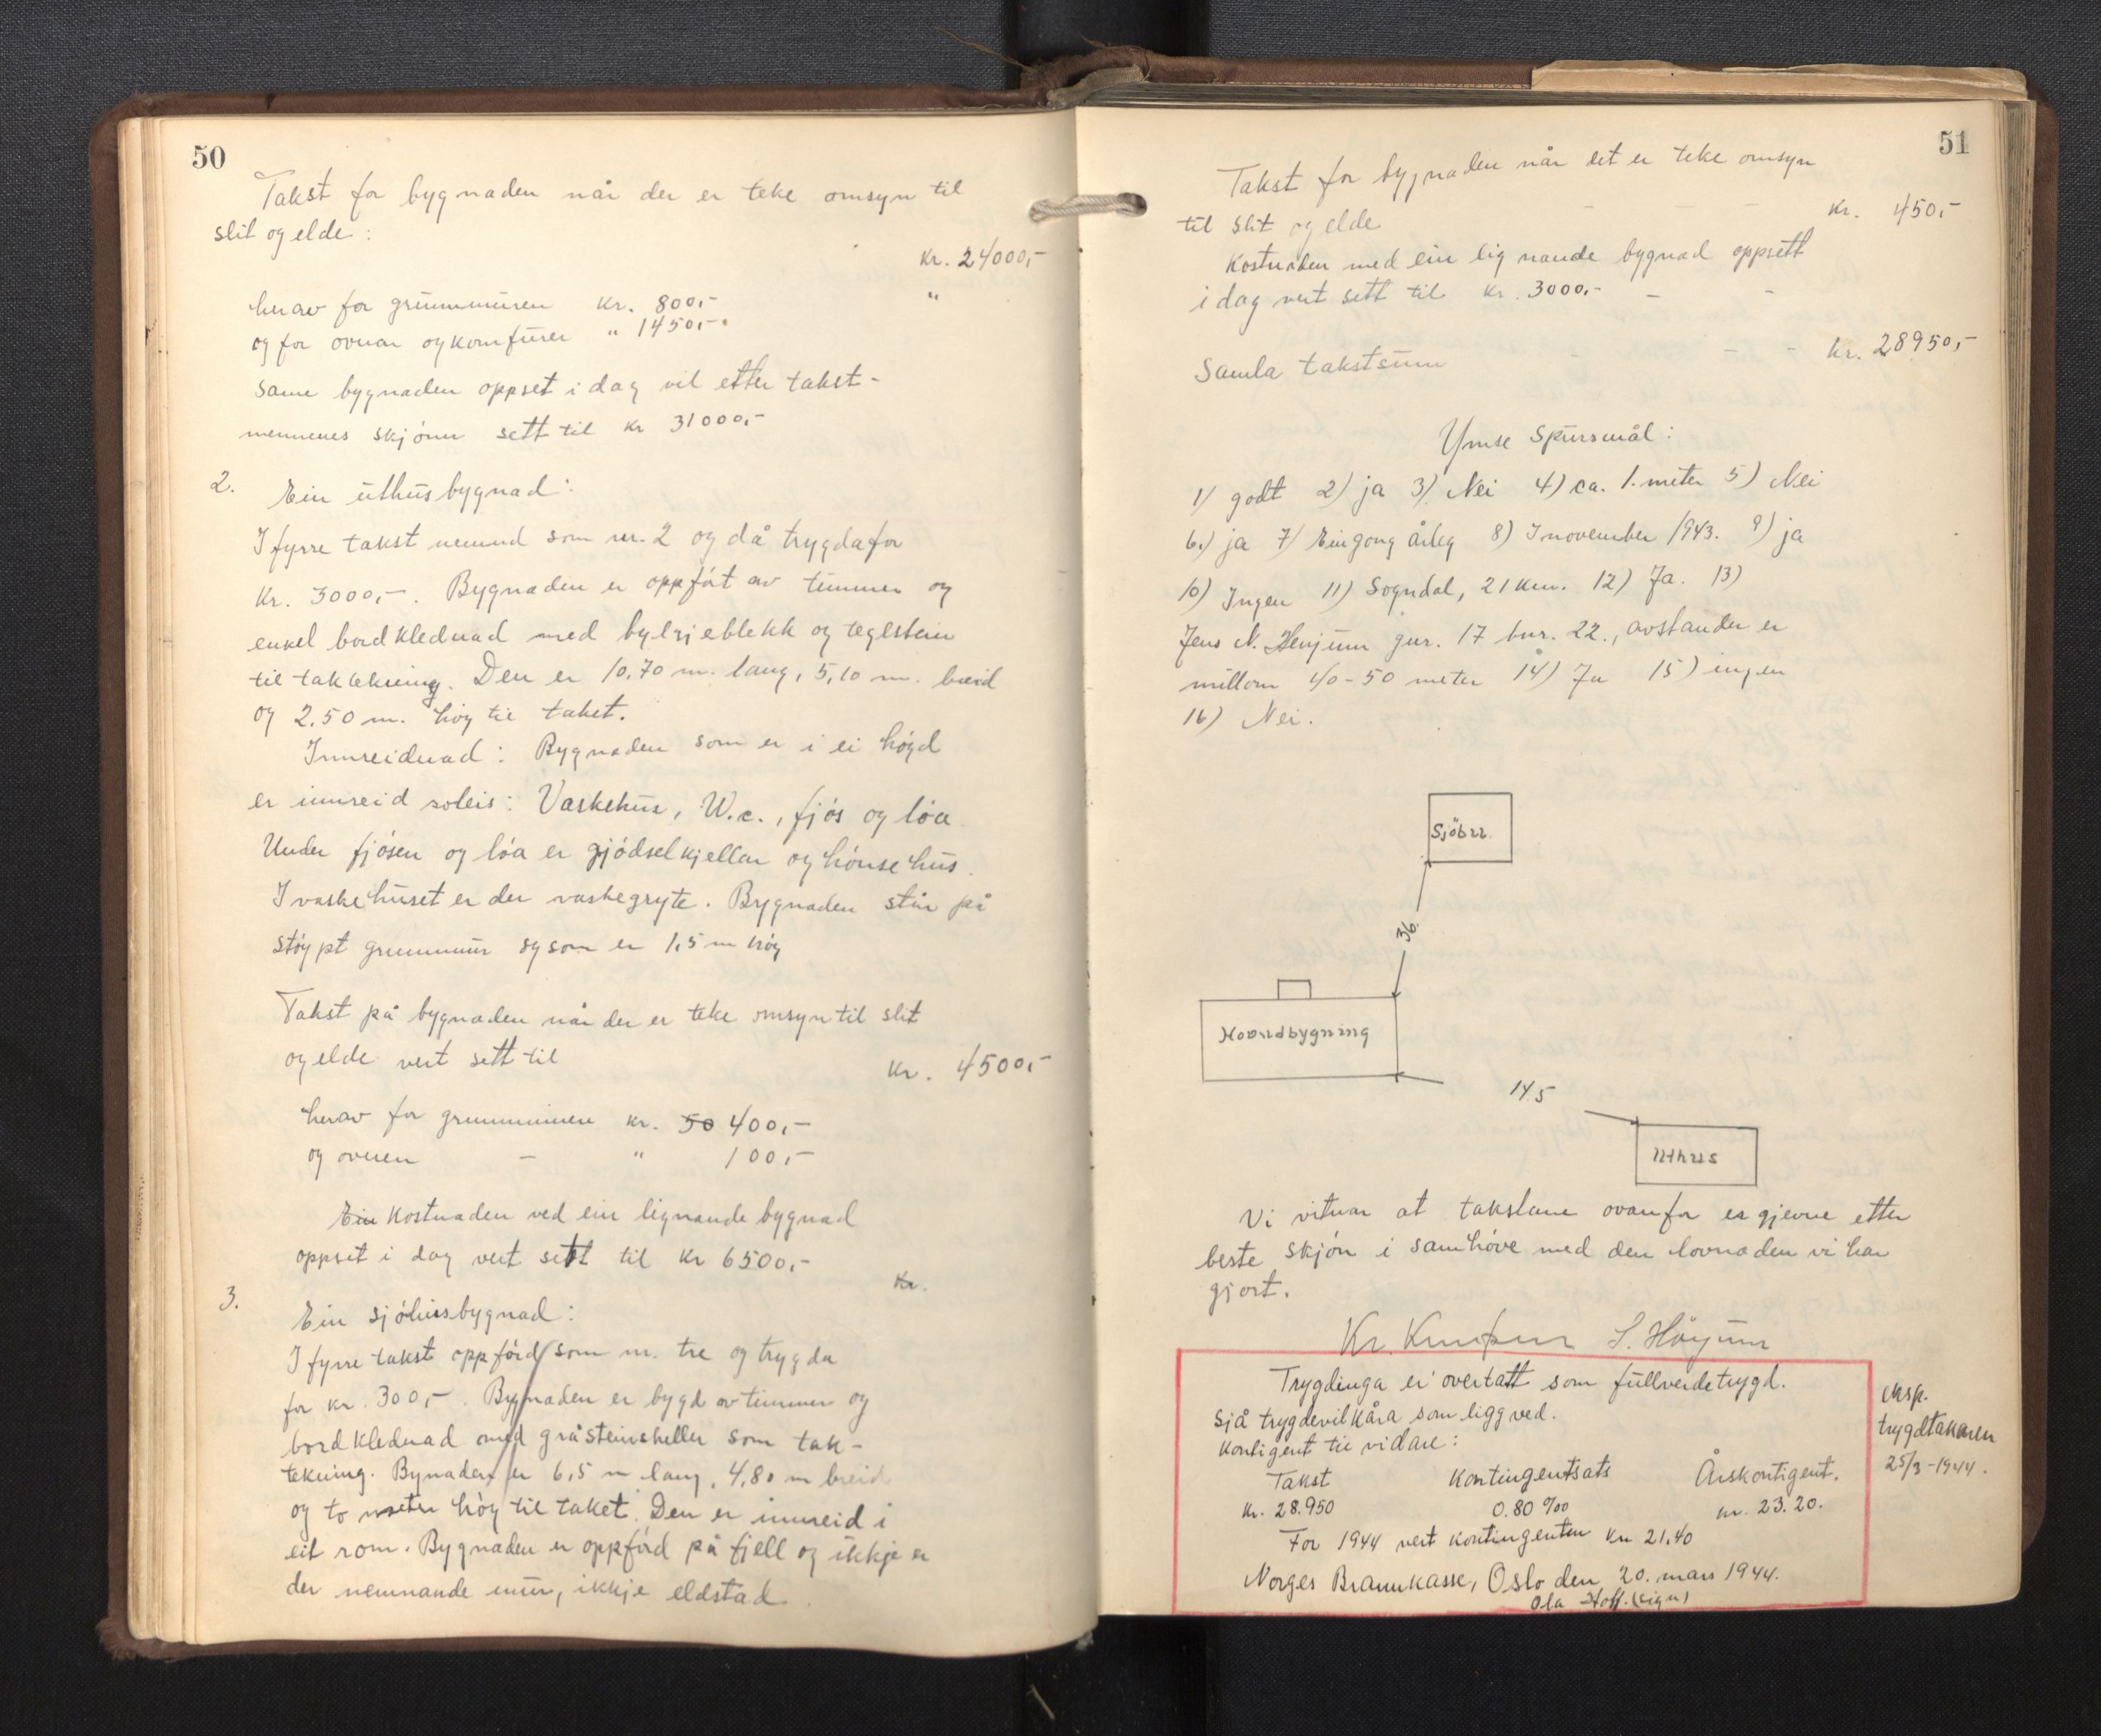 50
Takst for bygnaden når der er teke omsyn til
slit og elde:
kr. 24000,-
herav for grunnmuren kr. 800,- "
og for ovnar og komfurer " 1450,-
Same bygnaden oppset i dag vil etter takst-
mennenes skjönn sett til kr 31000,-
2. Ein uthusbygnad:
I fyrre takst nemnd som nr. 2 og då trygda for
kr. 3000,-. Bygnaden er oppfört av timmer og
enkel bordklednad med bylgjeblekk og teglstein
til taktekning. Den er 10,70 m. lang, 5,10 m. breid
og 2.50 m. høg til taket.
Innreidnad: Bygnaden som er i ei högd
er innreid soleis: Vaskehus, W.c., fjös og löa
Under fjösen og löa er gjödselkjellar og hönsehus.
I vaskehuset er der vaskegryte. Bygnaden står på
stöypt grunnmur og som er 1,5 m hög
Takst på bygnaden når der er teke omsyn til slit
og elde vert sett til
kr. 4500,-
herav for grunnmuren kr. 50 400,-
og ovnen - " 100,-
Ein Kostnaden ved ein lignande bygnad
oppset i dag vert sett til kr 6500,-
kr.
3. Ein sjöhusbygnad:
I fyrre takst oppförd som nr. tre og trygda
for kr. 300,-. Bygnaden er bygd av timmer og
bordklednad med gråsteinsheller som tak-
tekning. Bynaden er 6,5 m lang, 4,80 m breid
og to meter hög til taket. Den er innreid i
eit rom. Bygnaden er oppförd på fjell og ikkje er
der nemnande mur, ikkje eldstad.
51
Takst for bygnaden når det er teke omsyn
til slit og elde - - - kr. 450,-
Kostnaden med ein lignande bygnad oppsett
i dag vert sett til kr. 3000,- - -
Samla takstsum - - - kr. 28950,-
Ymse Spursmål:
1) godt 2) ja 3) Nei 4) ca. 1. meter 5) Nei
6.) ja 7) Eingong årleg 8) I november 1943. 9) ja
10) Ingen 11) Sogndal, 21 km. 12) Ja. 13)
Jens N. Henjum gnr. 17 bnr. 22., avstanden er
millom 40-50 meter 14) Ja 15) ingen
16) Nei.
Sjöbu
36
Hovudbygning
14.5
Uthus
Vi vitnar at takstane ovanfor er gjevne etter
beste skjön i samhöve med den lovnaden vi har
gjort.
S. Höyum
Trygdinga er overtatt som fullverdetrygd.
Sjå trygdevilkåra som ligg ved.
Kontigent til vidare:
Takst Kontingentsats Årskontigent.
kr. 28.950 0.80 ‰ kr. 23.20.
For 1944 vert kontingenten kr 21.40
Norges Brannkasse, Oslo den 20. mars 1944.
Ola Hoff. (sign)
eksp.
trygdtakaren
25/3-1944.